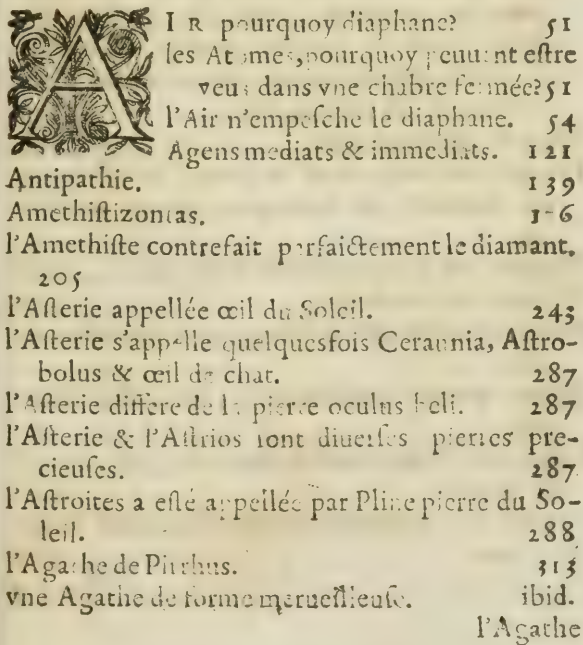 AIR pourquoy diaphane? 51
les Atomes, pourquoy peuuent estre
veus dans vne chãbre fermée? 51
l'Air n'empesche le diaphane. 54
Agens mediats & immediats. 121
Antipathie. 139
Amethistizontas.
l'Amethiste contrefait parfaictement le diamant.
205
l'Asterie appellée œil du Soleil. 243
l'Asterie s'appelle quelquesfois Ceraunia, Astro-
bolus & œil de chat. 287
l'Asterie differe de la pierre oculus beli. 287
l'Asterie & l'Astrios sont diuerses pierres pre-
cieuses. 287
l'Astroites a esté appellée par Pline pierre du So-
leil. 288
l'Agathe de Pirrhus. 313
vne Agathe de forme merueilleuse. ibid.
l'Agathe